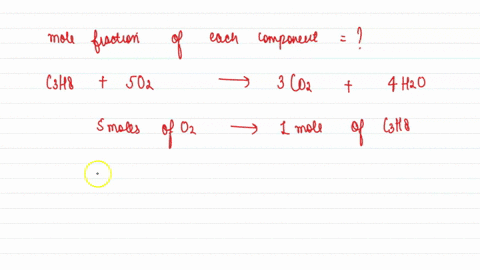 mole fraction of each component = ?
C3H8 + 5O2 → 3CO2 + 4H2O
5 moles of O2 → 1 mole of C3H8